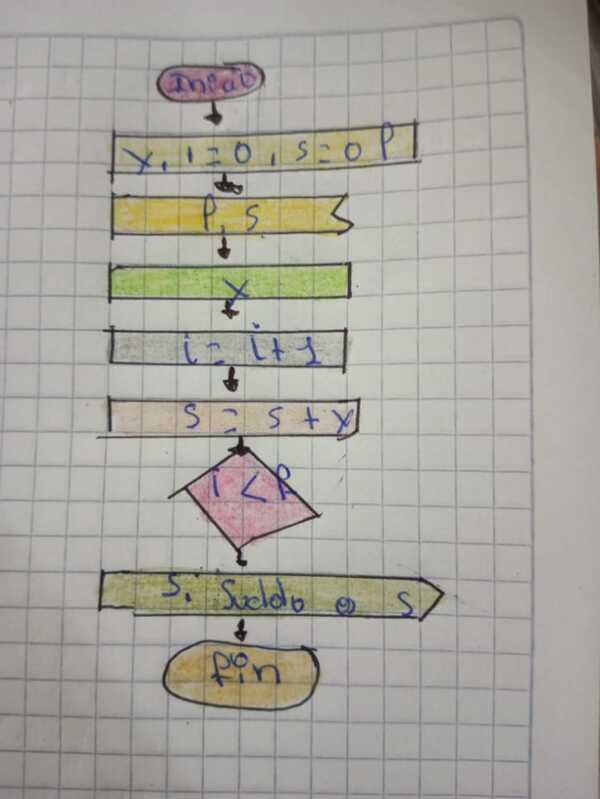 Inicio
x, i = 0, s = 0 P
P, s
x
i = i + 1
s = s + x
i < P
s, Sueldo s
fin